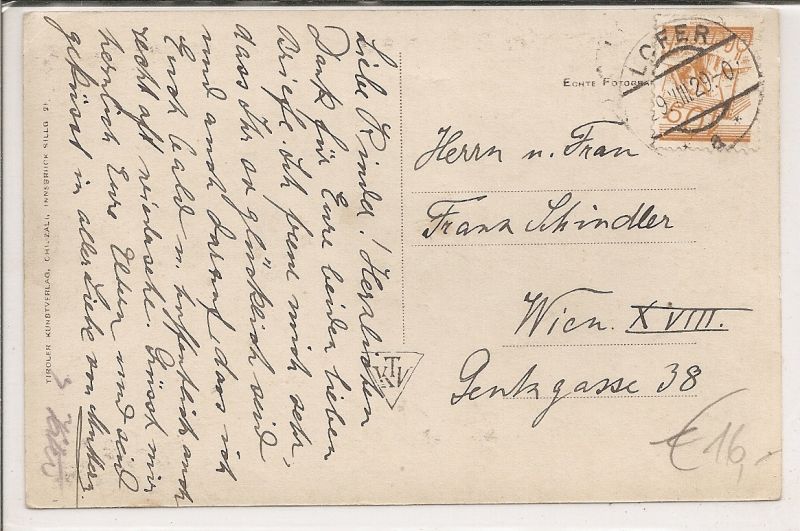 Liebe Kinder! Herzlichen
Dank für Eure beiden lieben
Briefe. Ich freue mich sehr,
dass Ihr so glücklich seid
und auch darauf, dass ich
Euch bald u. hoffentlich auch
recht oft wiedersehe. Grüsst mir
herzlich Eure Eltern und seid
gegrüsst in aller Liebe von
TIROLER KUNSTVERLAG, CHIZZALI, INNSBRUCK SILLG. 21
ECHTE
KTV
LOFER
60
Herrn u. Frau
Franz Schindler
Wien XVIII.
Gentzgasse 38
€16,-